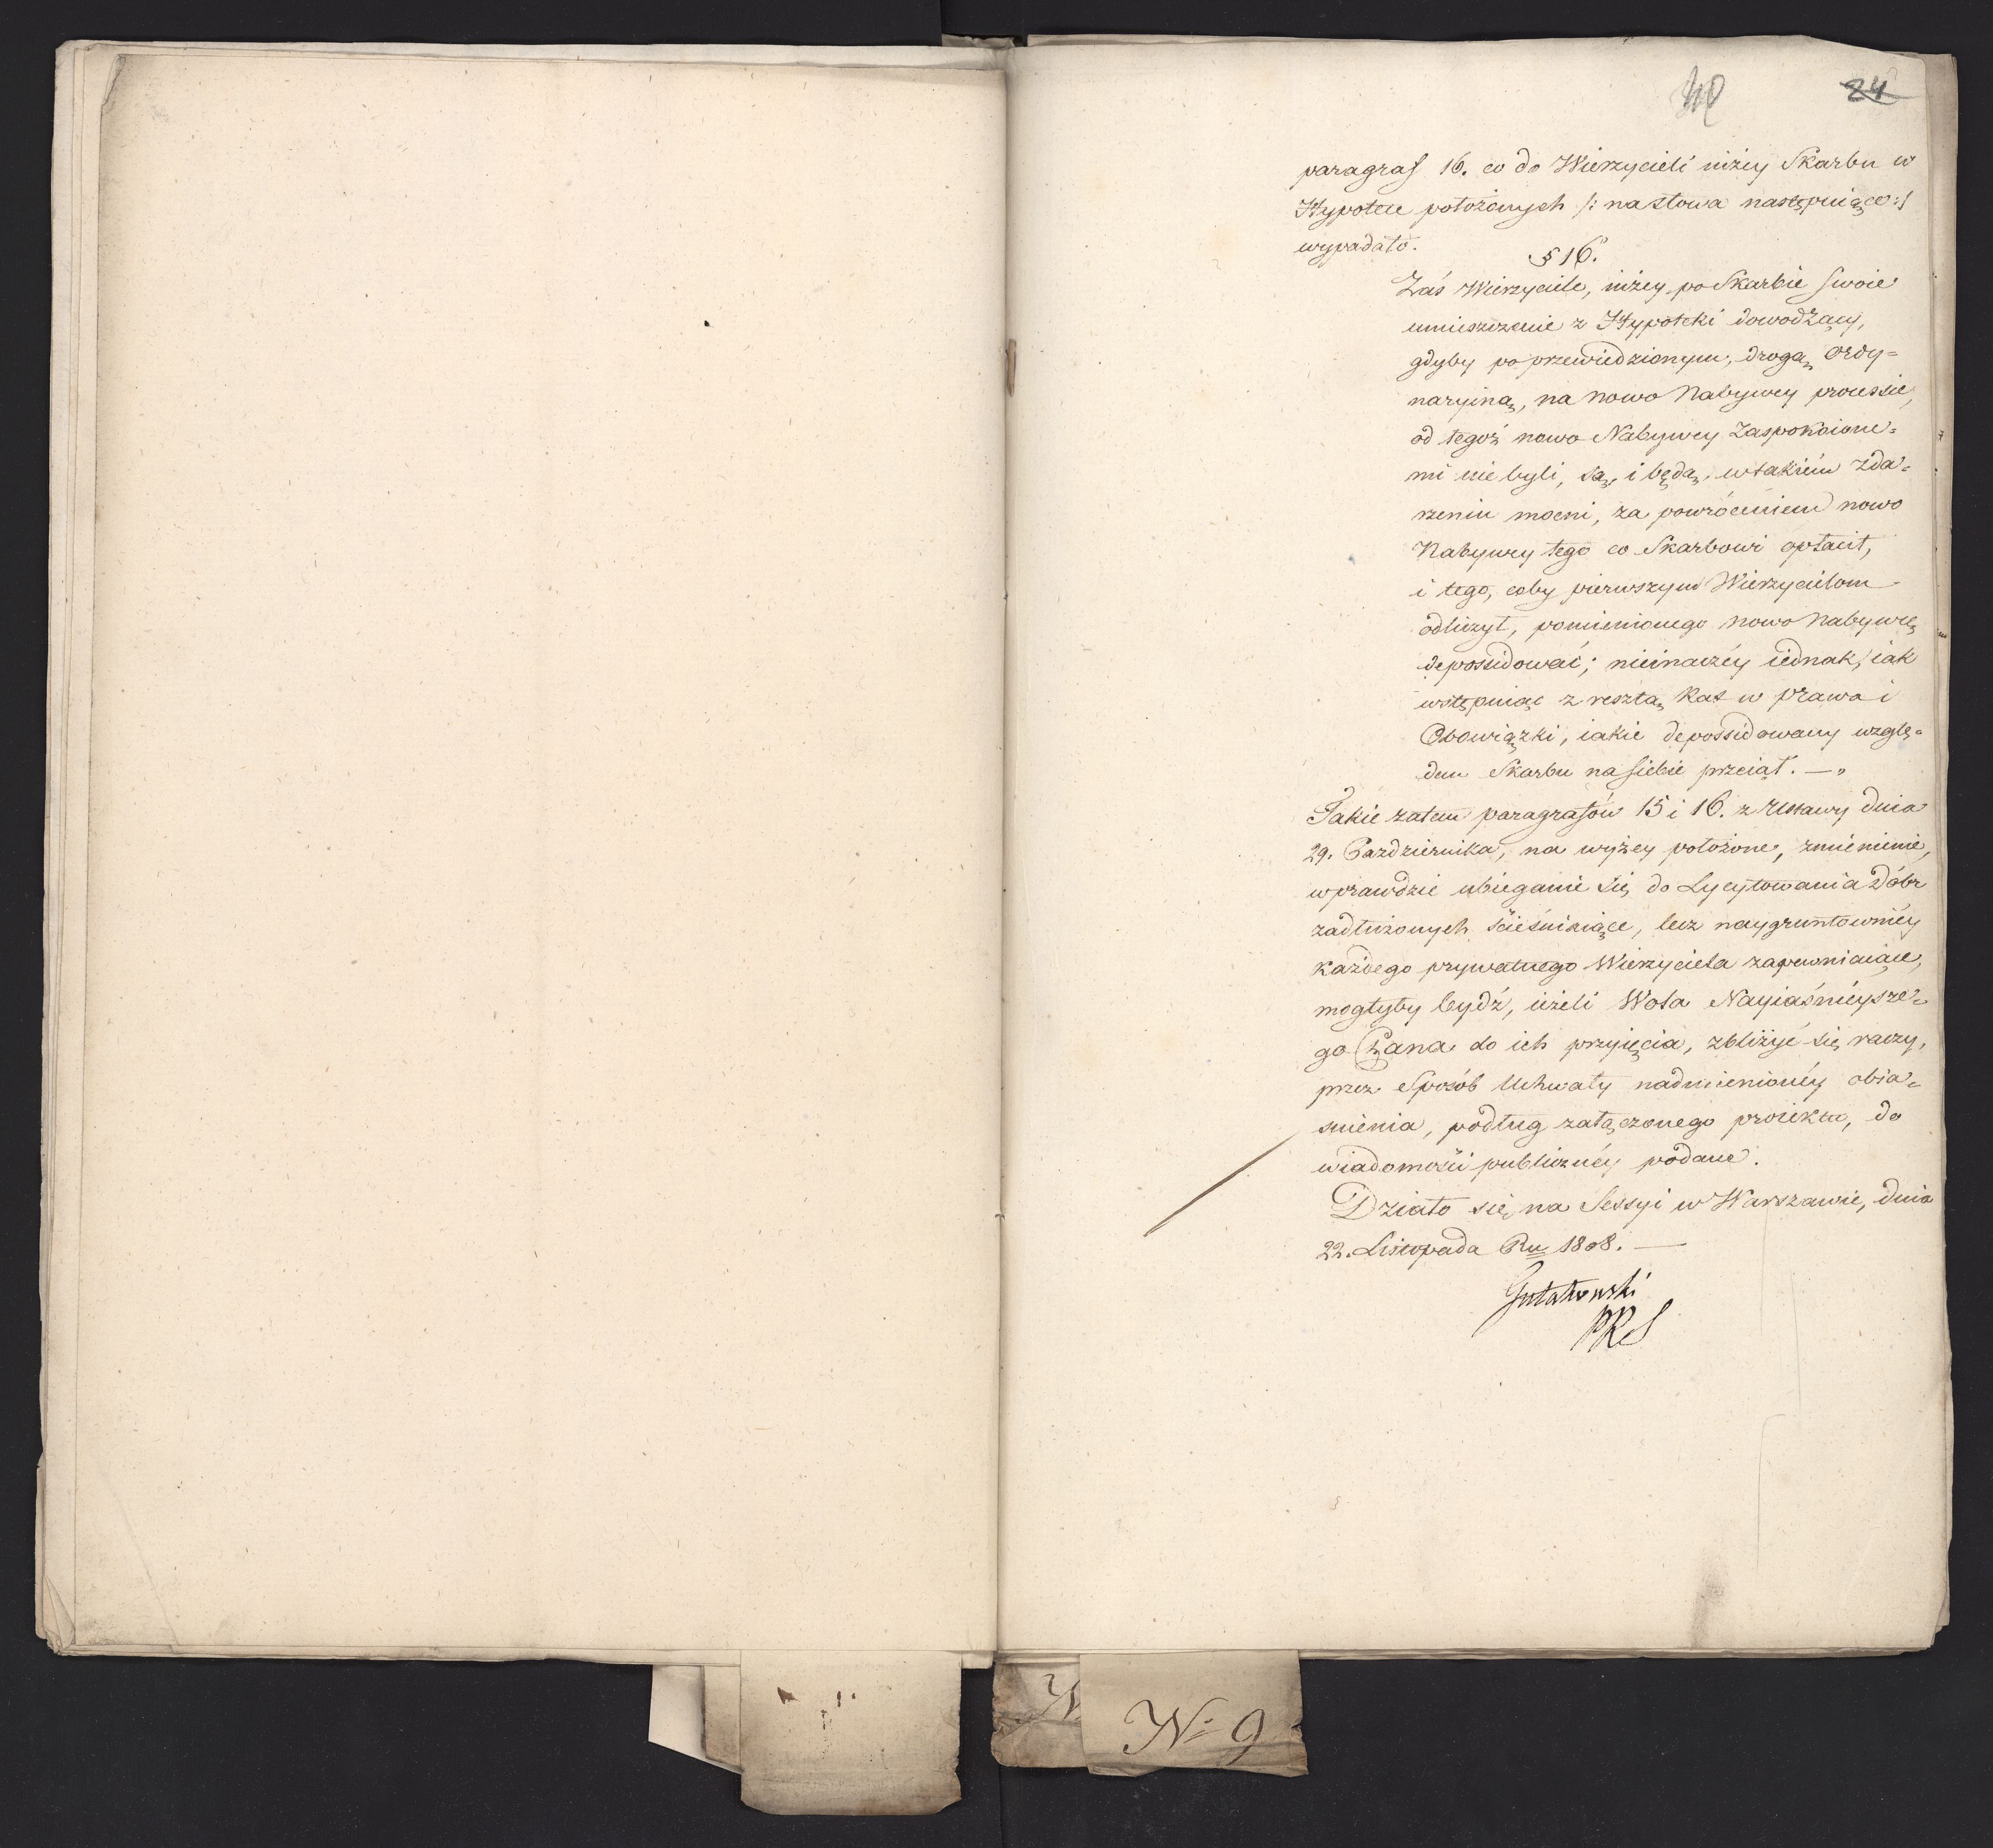 40 24
paragraf 16. co do Wierzycieli niżey Skarbu w
Hypotece położonych /: na słowa następuiące :/
wypadało.
§ 16.
Zaś Wierzyciele, niżey po Skarbie swoie
umieszczenie z Hypoteki dowodzący,
gdyby po przewiedzionym, drogą ordy=
naryiną, na nowo Nabywcy processie,
od tegoż nowo Nabywcy zaspokoione=
mi nie byli, są, i będą, w takiém zda=
rzeniu mocni, za powróceniem nowo
Nabywcy tego co Skarbowi opłacił,
i tego, coby pierwszym Wierzycielom
odliczył, pomienionego nowo Nabywcę
depossidować; nieinaczéy iednak, iak
wstępuiąc z resztą Kat w prawa i
Obowiązki, iakie depossidowany wzglę=
dem Skarbu na siebie przeiął. —
Takie zatem paragrafów 15 i 16. z Ustawy dnia
29. Października, na wyżey położone, zmienienie,
wprawdzie ubieganie się do Lycytowania Dóbr
zadłużonych ścieśniaiące, lecz naygruntowniéy
każdego prywatnego Wierzyciela zapewniaiące,
mogłyby bydź, ieżeli Wola Nayiaśnieysze=
go Pana do ich przyięcia, zbliżyć się raczy,
przez Sposób Uchwały nadmienionéy obia=
śnienia, podług załączonego proiektu, do
wiadomości publicznéy podane.
Działo się na Sessyi w Warszawie, dnia
22. Listopada Ru 1808. —
Gutakowski
PRS
N
No 9